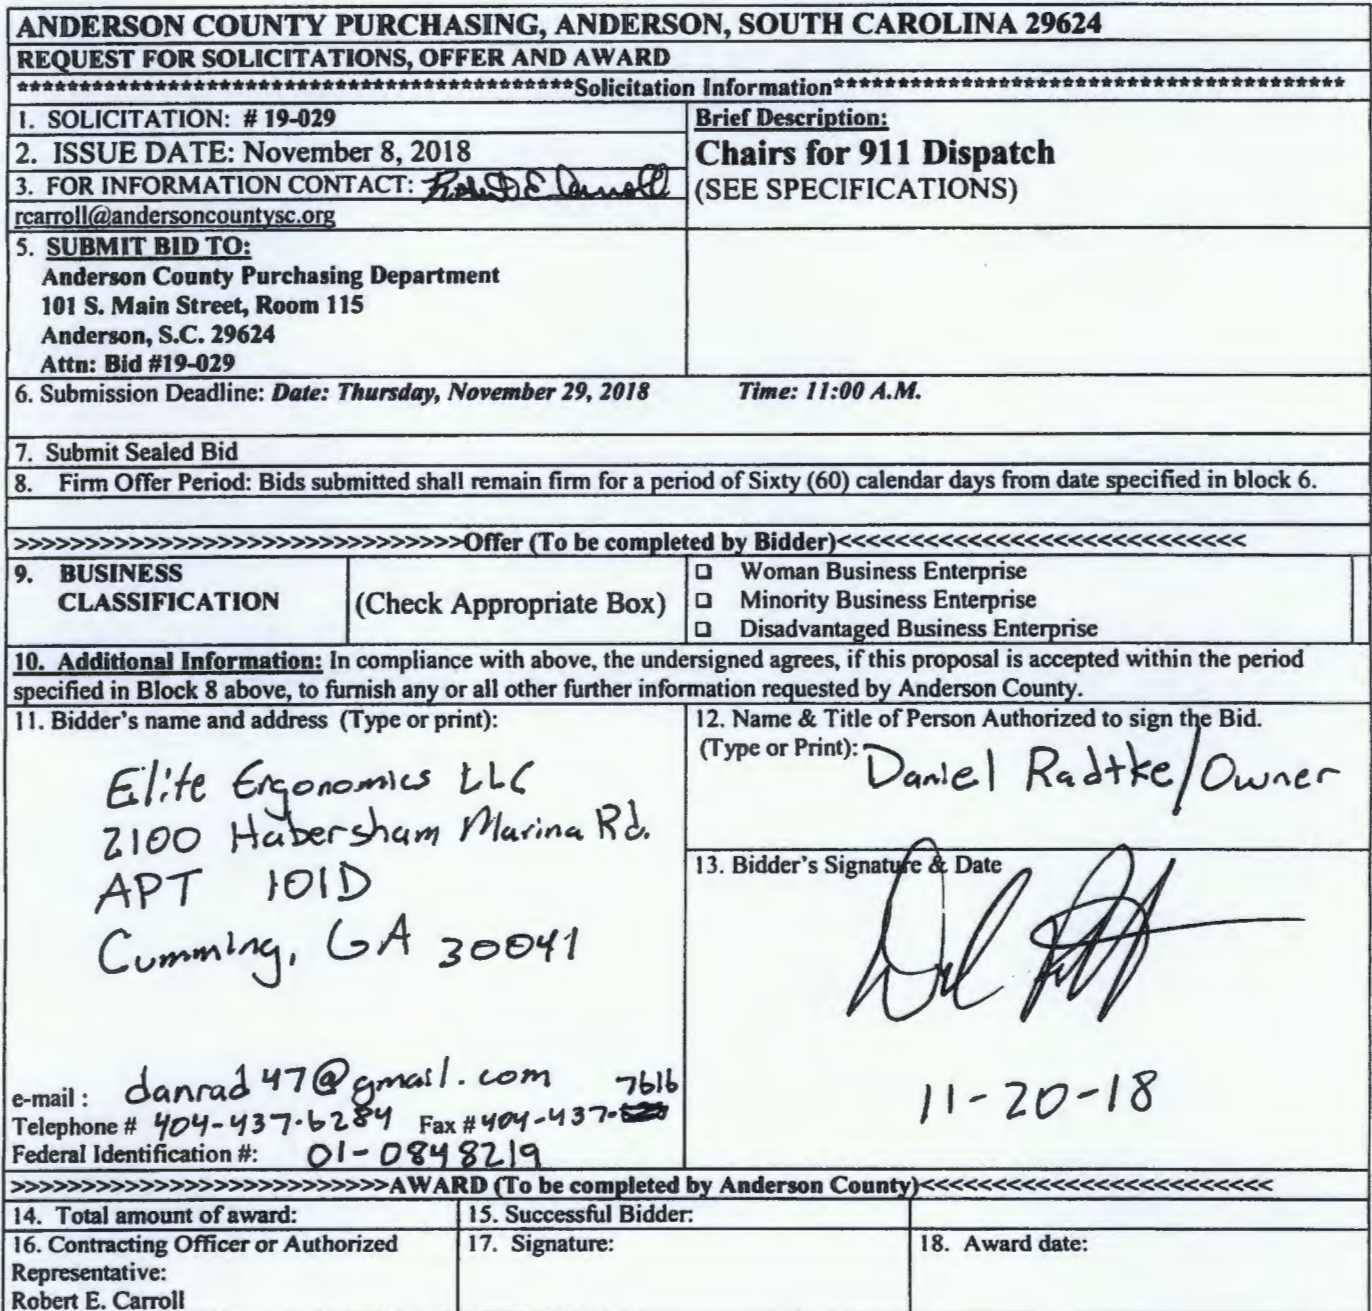 ANDERSON COUNTY PURCHASING, ANDERSON, SOUTH CAROLINA 29624
REQUEST FOR SOLICITATIONS, OFFER AND AWARD
*******************************************Solicitation Information****************************************
1. SOLICITATION: # 19-029
2. ISSUE DATE: November 8, 2018
3. FOR INFORMATION CONTACT: Robert E. Carroll
rcarroll@andersoncountysc.org
Brief Description:
Chairs for 911 Dispatch
(SEE SPECIFICATIONS)
5. SUBMIT BID TO:
Anderson County Purchasing Department
101 S. Main Street, Room 115
Anderson, S.C. 29624
Attn: Bid #19-029
6. Submission Deadline: Date: Thursday, November 29, 2018 Time: 11:00 A.M.
7. Submit Sealed Bid
8. Firm Offer Period: Bids submitted shall remain firm for a period of Sixty (60) calendar days from date specified in block 6.
>>>>>>>>>>>>>>>>>>>>>>>>>>>>>>>>Offer (To be completed by Bidder)<<<<<<<<<<<<<<<<<<<<<<<<<<<<
9. BUSINESS
CLASSIFICATION
(Check Appropriate Box)
Woman Business Enterprise
Minority Business Enterprise
Disadvantaged Business Enterprise
10. Additional Information: In compliance with above, the undersigned agrees, if this proposal is accepted within the period
specified in Block 8 above, to furnish any or all other further information requested by Anderson County.
11. Bidder's name and address (Type or print):
Elite Ergonomics LLC
2100 Habersham Marina Rd.
APT 101D
Cumming, GA 30041
e-mail : danrad47@gmail.com
7616
Telephone # 404-437-6284 Fax # 404-437-
Federal Identification #: 01-0848219
12. Name & Title of Person Authorized to sign the Bid.
(Type or Print): Daniel Radtke/Owner
13. Bidder's Signature & Date
11-20-18
>>>>>>>>>>>>>>>>>>>>>>>>>>AWARD (To be completed by Anderson County)<<<<<<<<<<<<<<<<<<<<<<<<
14. Total amount of award:
15. Successful Bidder:
16. Contracting Officer or Authorized
Representative:
Robert E. Carroll
17. Signature:
18. Award date: